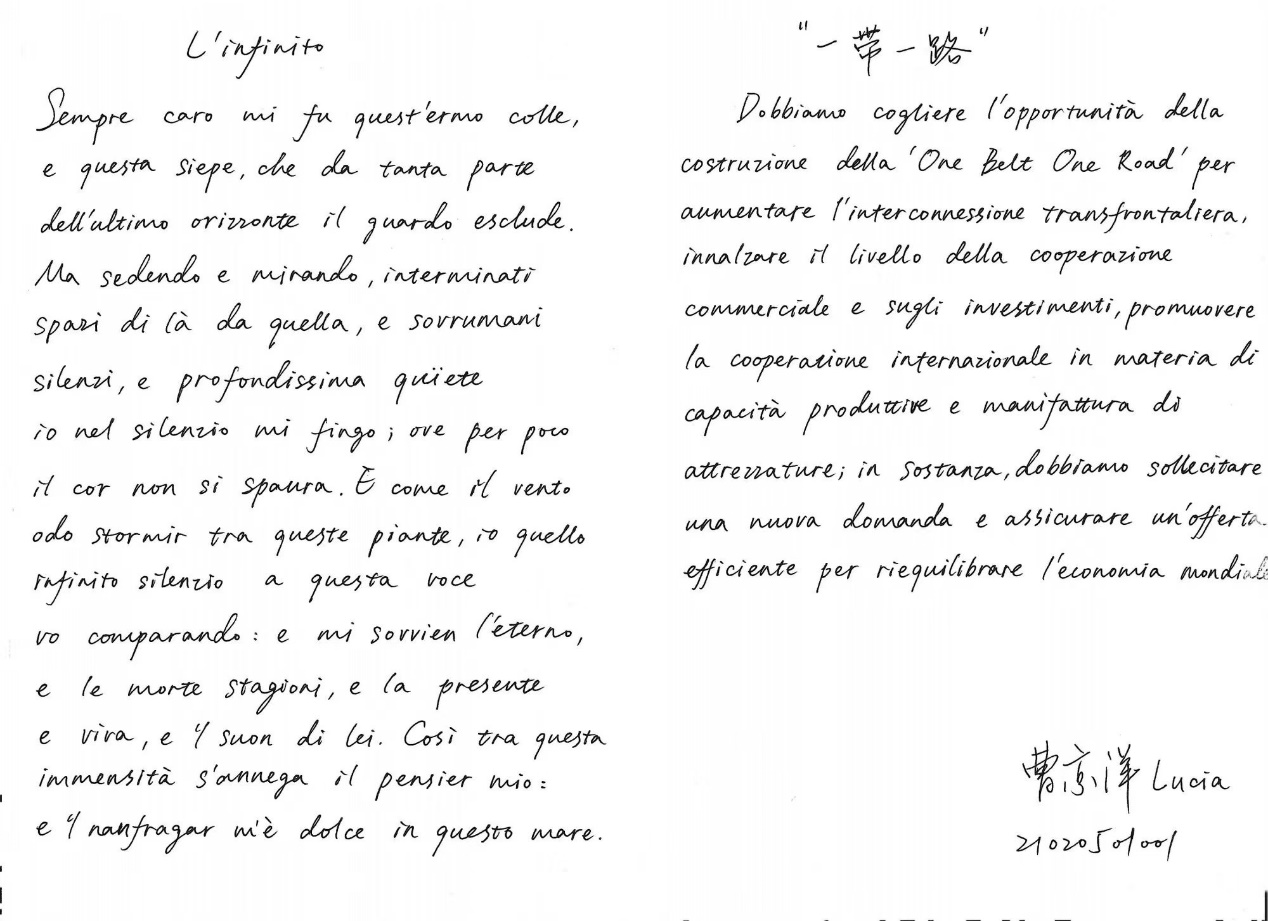 L'infinito
Sempre caro mi fu quest'ermo colle,
e questa siepe, che da tanta parte
dell'ultimo orizzonte il guardo esclude.
Ma sedendo e mirando, interminati
spazi di là da quella, e sovrumani
silenzi, e profondissima quïete
io nel silenzio mi fingo; ove per poco
il cor non si spaura. E come il vento
odo stormir tra queste piante, io quello
infinito silenzio a questa voce
vo comparando: e mi sovvien l'eterno,
e le morte stagioni, e la presente
e viva, e 'l suon di lei. Così tra questa
immensità s'annega il pensier mio:
e 'l naufragar m'è dolce in questo mare.
"一带一路"
Dobbiamo cogliere l'opportunità della
costruzione della 'One Belt One Road' per
aumentare l'interconnessione transfrontaliera,
innalzare il livello della cooperazione
commerciale e sugli investimenti, promuovere
la cooperazione internazionale in materia di
capacità produttive e manifattura di
attrezzature; in sostanza, dobbiamo sollecitare
una nuova domanda e assicurare un'offerta
efficiente per riequilibrare l'economia mondiale
曹京洋 Lucia
21020501001